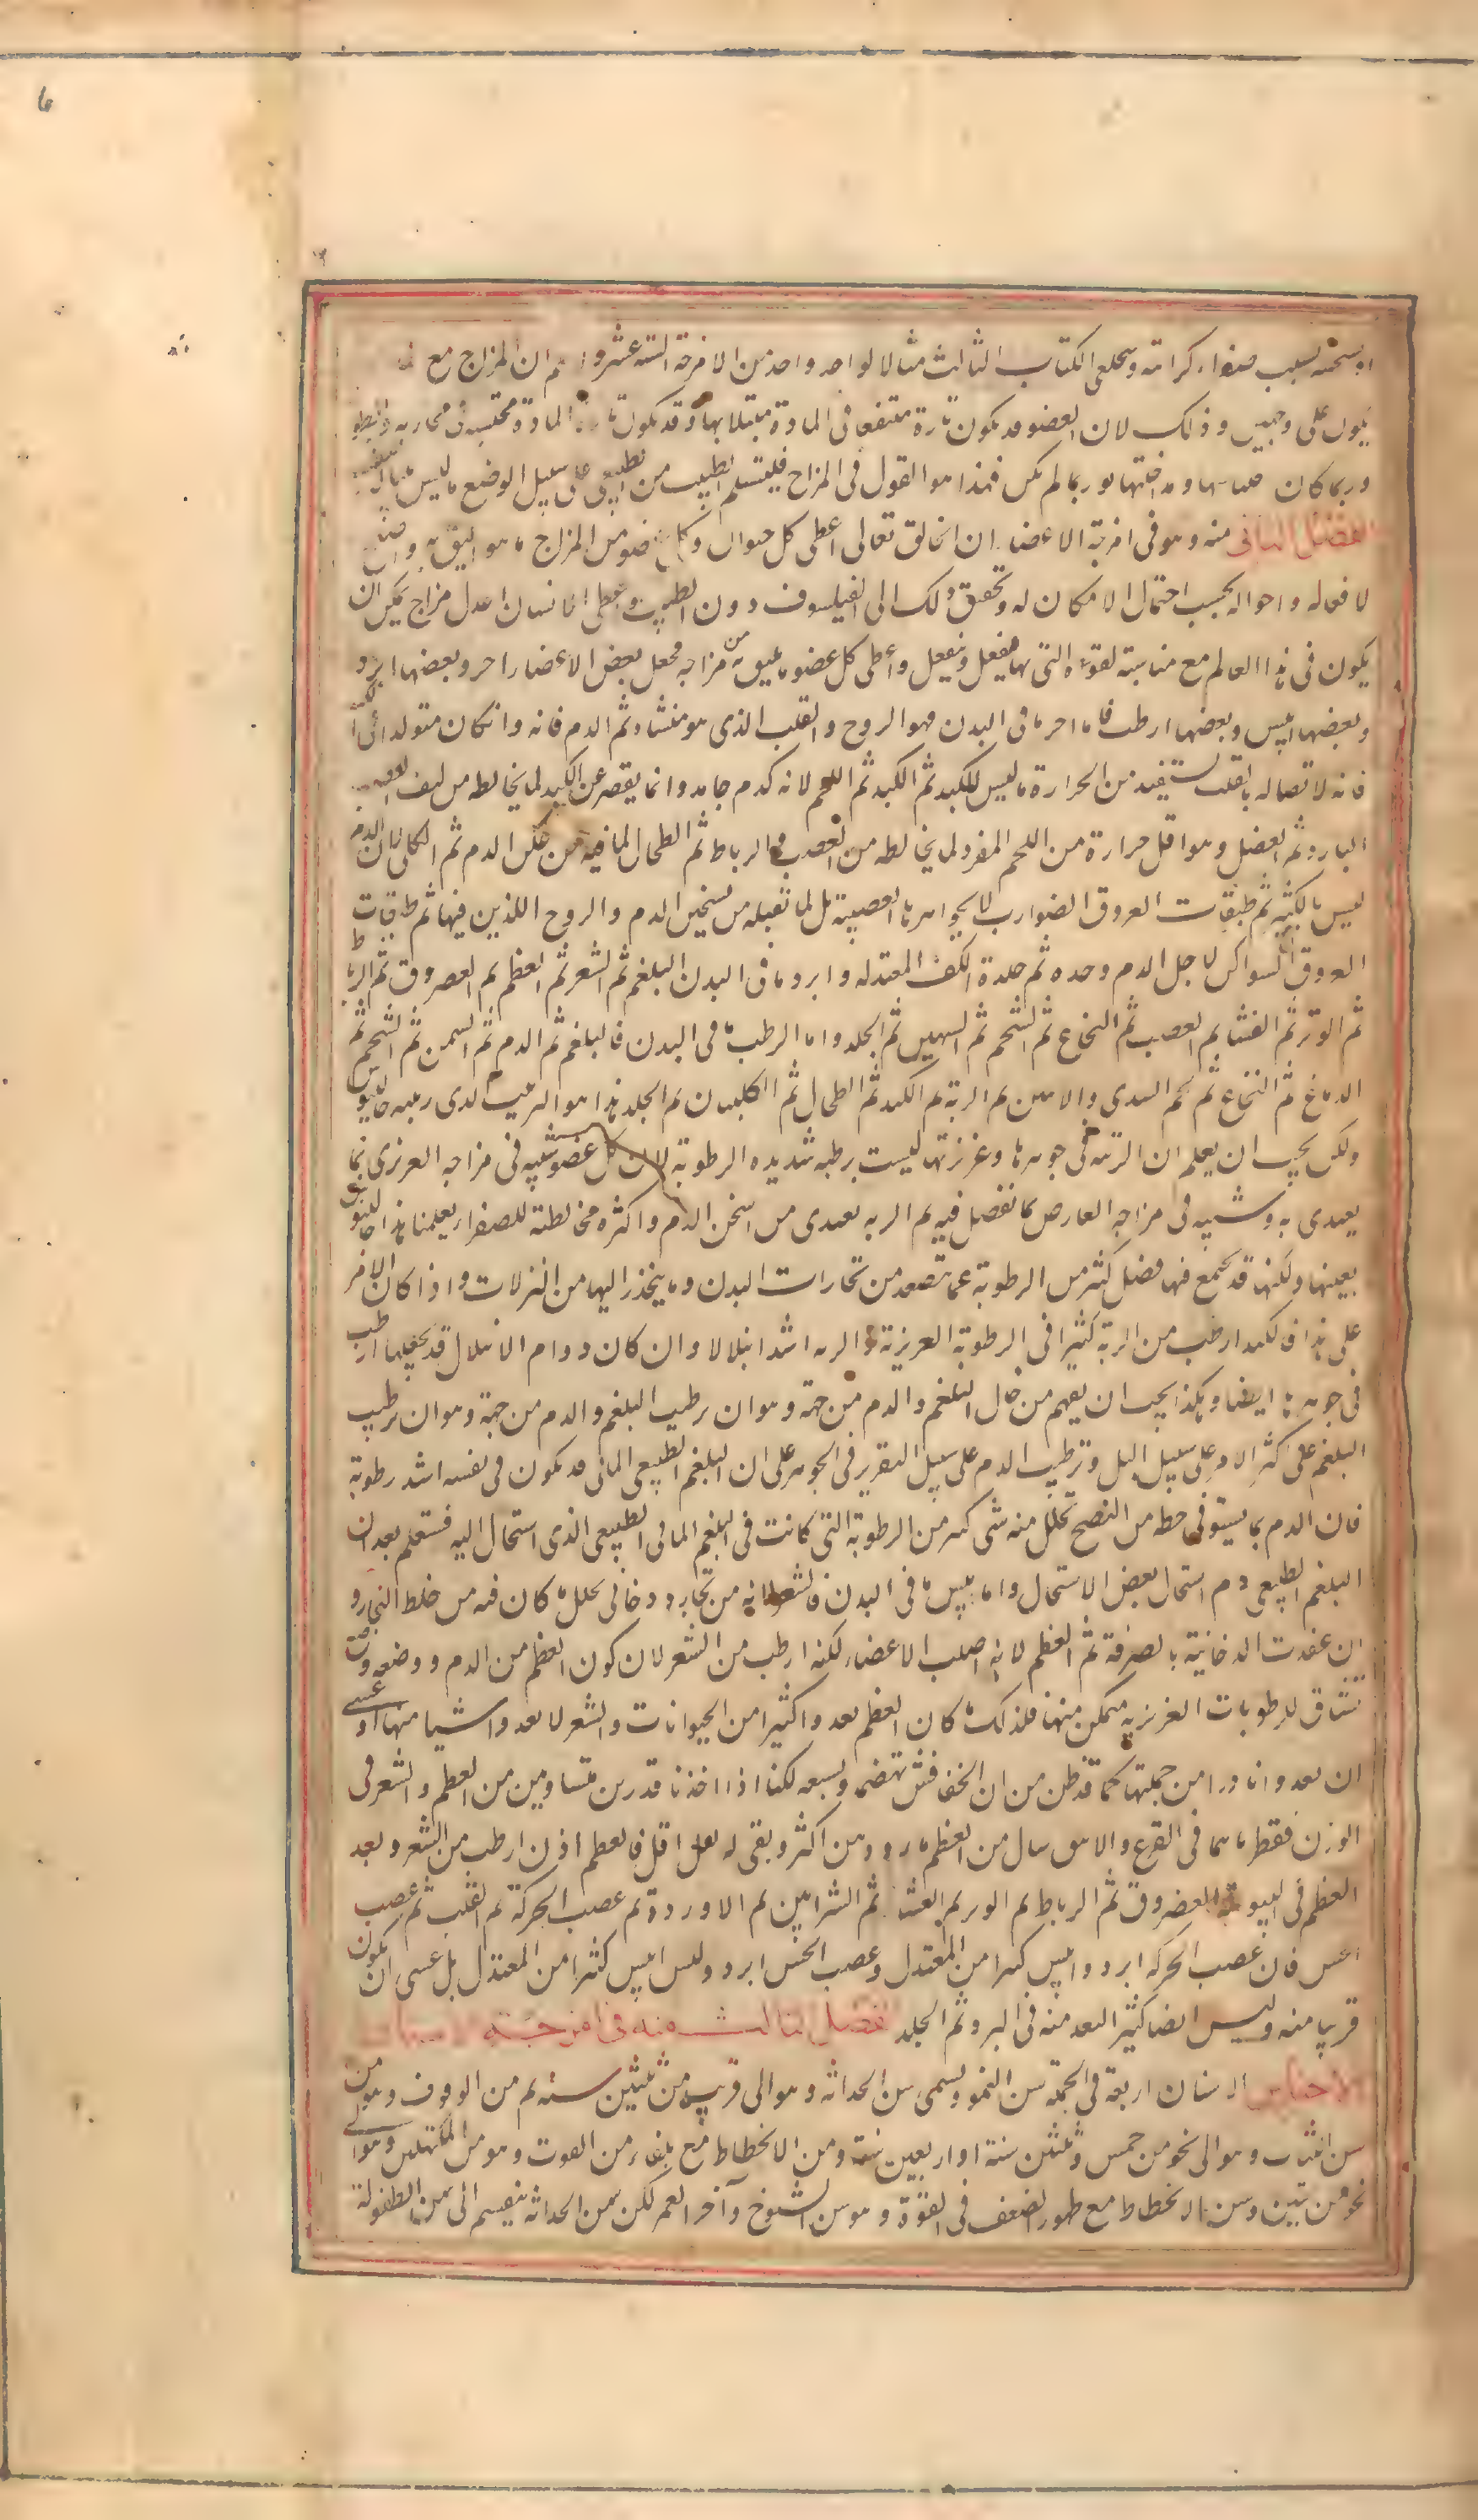 او يسخنه بسبب صفراء كراثية وستجد فى الكتاب الثالث مثالا لواحد واحد من الامزجة الستة عشر واعلم ان المزاج مع
يكون على وجهين وذلك لان العضو قد يكون تارة منتفعا فى المادة مبتلا بها وقد يكون تارة المادة محتبسة فى مجاريه
وربما كان لم يكن فهذا هو القول فى المزاج فليتسلم الطبيب من الطبيعى على سبيل الوضع ما ليس
الفصل الثانى منه وهو فى امزجة الاعضاء ان الخالق تعالى اعطى كل حيوان وكل عضو من المزاج ما هو اليق به واصلح
لافعاله واحواله بحسب احتمال الامكان له وتحقيق ذلك الى الفيلسوف دون الطبيب واعطى الانسان اعدل مزاج يمكن ان
يكون فى هذا العالم مع مناسبة لقواه التى بها يفعل وينفعل واعطى كل عضو ما يليق به من مزاجه فجعل بعض الاعضاء احر وبعضها ابرد
وبعضها ايبس وبعضها ارطب فاما احر ما فى البدن فهو الروح والقلب الذى هو منشاه ثم الدم فانه وان كان متولدا فى الكبد
فانه لاتصاله بالقلب يستفيد من الحرارة ما ليس للكبد ثم الكبد ثم اللحم لانه كدم جامد وانما يقصر عن الكبد لما يخالطه من ليف العصب
البارد ثم العضل وهو اقل حرارة من اللحم المفرد لما يخالطه من العصب والرباط ثم الطحال لما فيه من عكر الدم ثم الكلى لان الدم
ليس بالكثير ثم طبقات العروق الضوارب لا بجواهرها العصبية بل لما تقبله من تسخين الدم والروح اللذين فيها ثم طبقات
العروق السواكن لاجل الدم وحده ثم جلدة الكف المعتدلة وابرد ما فى البدن البلغم ثم الشعر ثم العظم ثم الغضروف ثم الرباط
ثم الوتر ثم الغشاء ثم العصب ثم النخاع ثم الشحم ثم السمين ثم الجلد واما ارطب ما فى البدن فالبلغم ثم الدم ثم السمن ثم الشحم ثم
الدماغ ثم النخاع ثم لحم الثدى والانثيين ثم الرية ثم الكبد ثم الطحال ثم الكليتان ثم الجلد هذا هو الترتيب الذى رتبه جالينوس
ولكن يجب ان يعلم ان الرية فى جوهرها وغريزتها ليست برطبة شديدة الرطوبة لان كل عضو شبيه فى مزاجه الغريزى بما
يغتذى به وشبيه فى مزاجه العارض بما يفضل فيه ثم الرية تغتذى من اسخن الدم واكثره مخالطة للصفراء يعلمنا هذا جالينوس
بعينها ولكنها قد يجتمع فيها فضل كثير من الرطوبة عما يتصعد من بخارات البدن وما ينحدر اليها من النزلات واذا كان الامر
على هذا فالكبد ارطب من الرية كثيرا فى الرطوبة الغريزية والرية اشد ابتلالا وان كان دوام الابتلال قد يجعلها ارطب
فى جوهرها ايضا وهكذا يجب ان يفهم من حال البلغم والدم من جهة وهو ان ترطيب البلغم والدم من جهة وهو ان ترطيب
البلغم على اكثر الامر على سبيل البل وترطيب الدم على سبيل التقرير فى الجوهر على ان البلغم الطبيعى المائى قد يكون فى نفسه اشد رطوبة
فان الدم بما يستوفى حظه من النضج يتحلل منه شى كثير من الرطوبة التى كانت فى البلغم المائى الطبيعى الذى استحال اليه فستعلم بعد ان
البلغم الطبيعى دم استحال بعض الاستحال واما ايبس ما فى البدن فالشعر لانه من بخار دخانى تحلل ما كان فيه من خلط البخار و
ان عقدت الدخانية الصرفة ثم العظم لانه اصلب الاعضاء لكنه ارطب من الشعر لان كون العظم من الدم ووضعه وضع
نشاق للرطوبات الغريزية متمكن منها فلذلك ما كان العظم يغذو كثيرا من الحيوانات والشعر لا يغذو شيئا منها او عسى
ان يغذو نادرا من جملتها كما قد ظن من ان الخفافيش تهضمه وتسيغه لكنا اذا اخذنا قدرين متساويين من العظم والشعر فى
الوزن فقطرناهما فى القرع والانبيق سال من العظم ماء ودهن اكثر وبقى له ثفل اقل فالعظم اذن ارطب من الشعر وبعد
العظم فى اليبوسة الغضروف ثم الرباط ثم الوتر ثم الغشاء ثم الشرايين ثم الاوردة ثم عصب الحركة ثم القلب ثم عصب
الحس فان عصب الحركة ابرد وايبس كثيرا من المعتدل وعصب الحس ابرد وليس ايبس كثيرا من المعتدل بل عسى ان يكون
قريبا منه وليس ايضا كثير البعد منه فى البرد ثم الجلد الفصل الثالث منه فى امزجة الاسنان
الاجناس الاسنان اربعة فى الجملة سن النمو ويسمى سن الحداثة وهو الى قريب من ثلثين سنة ثم سن الوقوف وهو سن
سن الشباب وهو الى نحو من خمس وثلثين سنة او اربعين سنة وسن الانحطاط مع بقاء من القوة وهو سن المكتهلين وهو الى
نحو من ستين وسن الانحطاط مع ظهور الضعف فى القوة وهو سن الشيوخ وآخر العمر لكن سن الحداثة ينقسم الى سن الطفولة